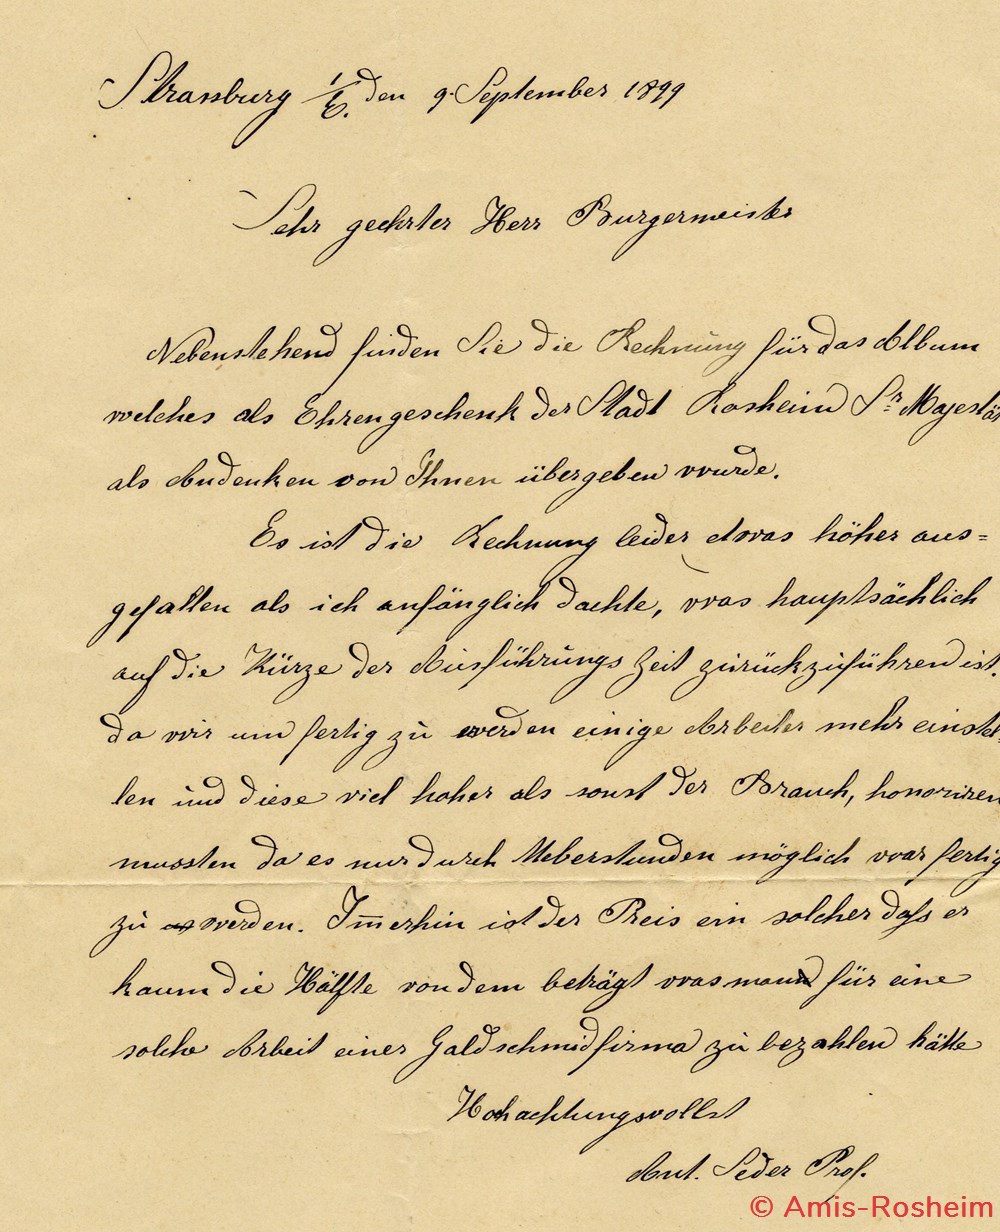 Strassburg i/E. den 9. September 1899
Sehr geehrter Herr Burgermeister
Nebenstehend finden Sie die Rechnung für das Album
welches als Ehrengeschenk der Stadt Rosheim Sr Majestät
als Andenken von Ihnen übergeben wurde.
Es ist die Rechnung leider etwas höher aus=
gefallen als ich anfänglich dachte, was hauptsächlich
auf die Kürze der Ausführungs Zeit zurückzuführen ist.
da wir um fertig zu werden einige Arbeiter mehr einstel-
len und diese viel hoher als sonst der Brauch, honoriren
mussten da es nur durch Ueberstunden möglich war fertig
zu werden. Im̅erhin ist der Preis ein solcher daß er
kaum die Hälfte von dem beträgt was man für eine
solche Arbeit einer Goldschmidfirma zu bezahlen hätte
Hochachtungsvollst
Ant. Seder Prof.
© Amis-Rosheim